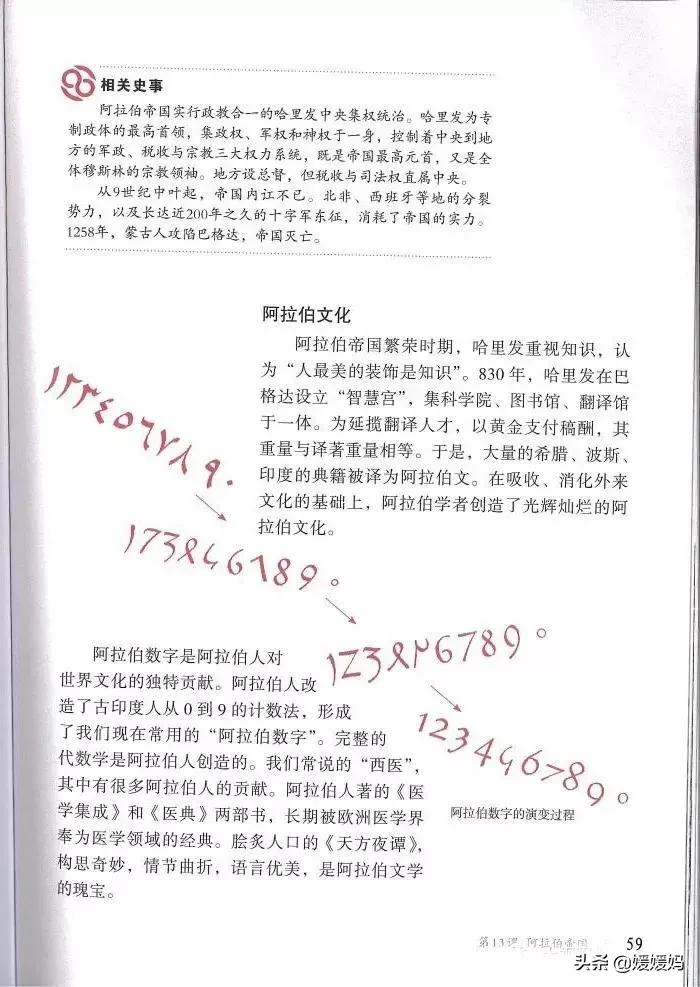 相关史事
阿拉伯帝国实行政教合一的哈里发中央集权统治。哈里发为专
制政体的最高首领，集政权、军权和神权于一身，控制着中央到地
方的军政、税收与宗教三大权力系统，既是帝国最高元首，又是全
体穆斯林的宗教领袖。地方设总督，但税收与司法权直属中央。
从9世纪中叶起，帝国内讧不已。北非、西班牙等地的分裂
势力，以及长达近200年之久的十字军东征，消耗了帝国的实力。
1258年，蒙古人攻陷巴格达，帝国灭亡。
阿拉伯文化
阿拉伯帝国繁荣时期，哈里发重视知识，认
为“人最美的装饰是知识”。830 年，哈里发在巴
格达设立“智慧宫”，集科学院、图书馆、翻译馆
于一体。为延揽翻译人才，以黄金支付稿酬，其
重量与译著重量相等。于是，大量的希腊、波斯、
印度的典籍被译为阿拉伯文。在吸收、消化外来
文化的基础上，阿拉伯学者创造了光辉灿烂的阿
拉伯文化。
阿拉伯数字是阿拉伯人对
世界文化的独特贡献。阿拉伯人改
造了古印度人从 0 到 9 的计数法，形成
了我们现在常用的“阿拉伯数字”。完整的
代数学是阿拉伯人创造的。我们常说的“西医”，
其中有很多阿拉伯人的贡献。阿拉伯人著的《医
学集成》和《医典》两部书，长期被欧洲医学界
奉为医学领域的经典。脍炙人口的《天方夜谭》，
构思奇妙，情节曲折，语言优美，是阿拉伯文学
的瑰宝。
阿拉伯数字的演变过程
第13课 阿拉伯帝国 59
头条 @媛媛妈